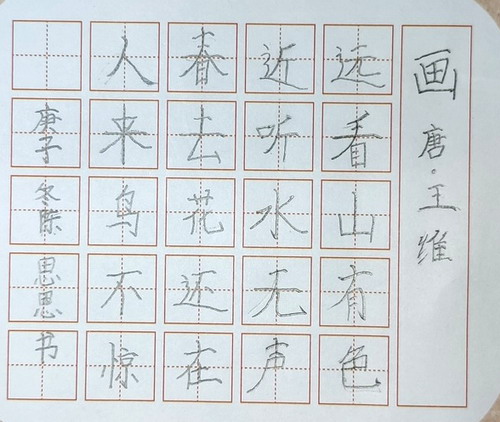 画 唐·王维
远看山有色
近听水无声
春去花还在
人来鸟不惊
庚子冬陈思思书